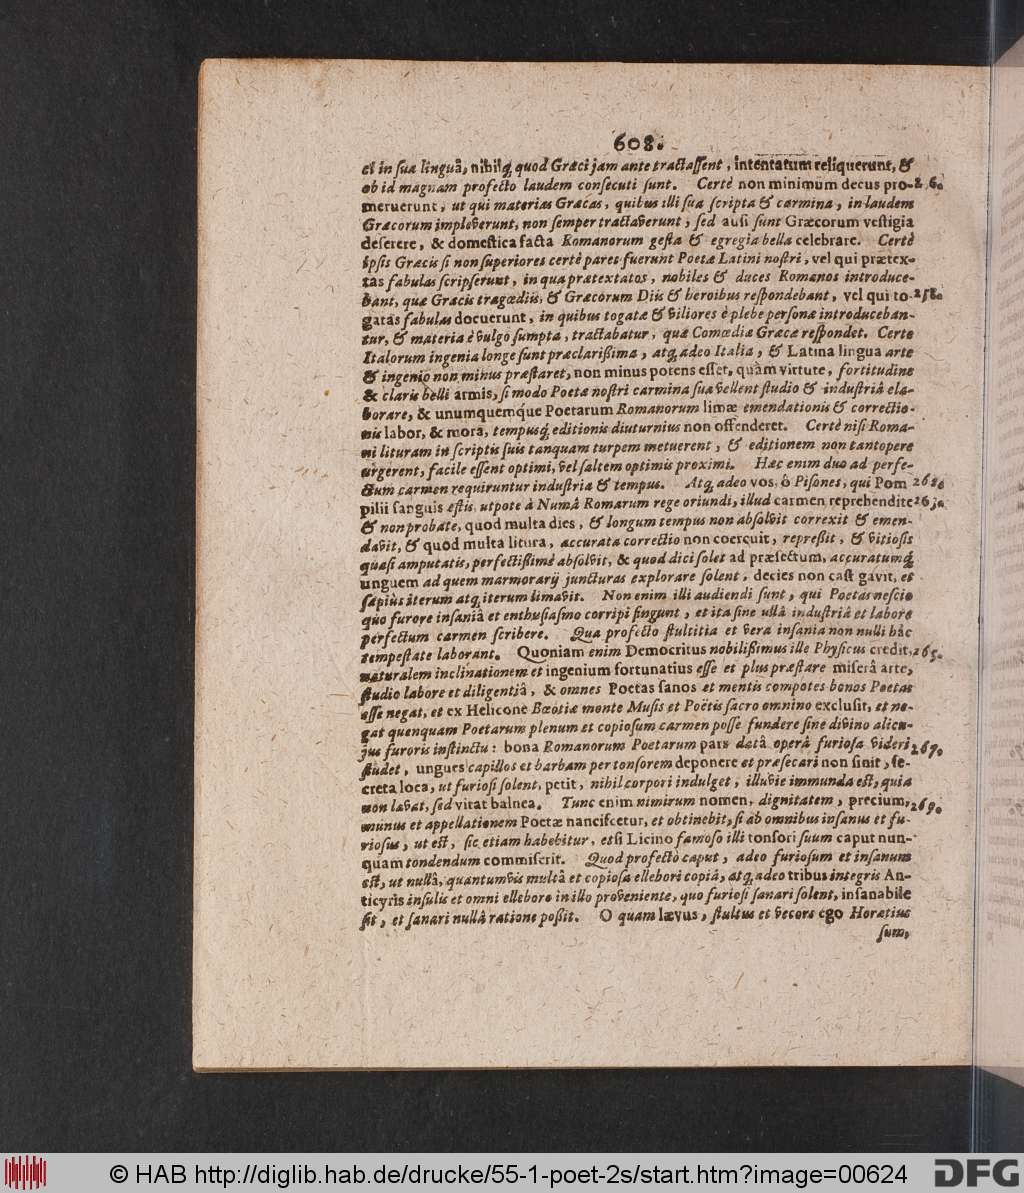 608.
ci in sua linguâ, nihilq́; quod Græci jam ante tractassent, intentatum reliquerunt, &
ob id magnam profecto laudem consecuti sunt. Certè non minimum decus pro-
meruerunt, ut qui materias Græcas, quibus illi sua scripta & carmina, in laudem
Græcorum impleverunt, non semper tractaverunt, sed ausi sunt Græcorum vestigia
deserere, & domestica facta Romanorum gesta & egregia bella celebrare. Certè
ipsis Græcis si non superiores certè pares fuerunt Poetæ Latini nostri, vel qui prætex-
tas fabulas scripserunt, in qua prætextatos, nobiles & duces Romanos introduce-
bant, quæ Græcis tragœdiis, & Græcorum Diis & heroibus respondebant, vel qui to-
gatas fabulas docuerunt, in quibus togatæ & viliores è plebe personæ introduceban-
tur, & materia è vulgo sumpta, tractabatur, quæ Comœdiæ Græcæ respondet. Certe
Italorum ingenia longe sunt præclarißima, atq; adeo Italia, & Latina lingua arte
& ingenio non minus præstaret, non minus potens esset, quàm virtute, fortitudine
& claris belli armis, si modo Poetæ nostri carmina sua vellent studio & industriâ ela-
borare, & unumquemq́ue Poetarum Romanorum limæ emendationis & correctio-
nis labor, & mora, tempusq́; editionis diuturnius non offenderet. Certè nisi Roma-
ni lituram in scriptis suis tanquam turpem metuerent, & editionem non tantopere
urgerent, facile essent optimi, vel saltem optimis proximi. Hæc enim duo ad perfe-
ctum carmen requiruntur industria & tempus. Atq; adeo vos, ô Pisones, qui Pom
pilii sanguis estis, utpote à Numâ Romarum rege oriundi, illud carmen reprehendite
& non probate, quod multa dies, & longum tempus non absolvit correxit & emen-
davit, & quod multa litura, accurata correctio non coercuit, repreßit, & vitiosis
quasi amputatis, perfectißimè absolvit, & quod dici solet ad præsectum, accuratumq́;
unguem ad quem marmorarij juncturas explorare solent, decies non castigavit, et
sæpiùs iterum atq; iterum limavit. Non enim illi audiendi sunt, qui Poetas nescio
quo furore insaniâ et enthusiasmo corripi fingunt, et ita sine ullâ industriâ et labore
perfectum carmen scribere. Qua profecto stultitia et vera insania non nulli hâc
tempestate laborant. Quoniam enim Democritus nobilißimus ille Physicus credit,
naturalem inclinationem et ingenium fortunatius esse et plus præstare miserâ arte,
studio labore et diligentiâ, & omnes Poetas sanos et mentis compotes bonos Poetas
esse negat, et ex Helicone Bœotiæ monte Musis et Poëtis sacro omnino exclusit, et ne-
gat quenquam Poetarum plenum et copiosum carmen posse fundere sine divino alicu-
jus furoris instinctu: bona Romanorum Poetarum pars datâ operâ furiosa videri
studet, ungues capillos et barbam per tonsorem deponere et præsecari non sinit, se-
creta loca, ut furiosi solent, petit, nihil corpori indulget, illuvie immunda est, quia
non lavat, sed vitat balnea. Tunc enim nimirum nomen, dignitatem, precium,
munus et appellationem Poetæ nanciscetur, et obtinebit, si ab omnibus insanus et fu-
riosus, ut est, sic etiam habebitur, etsi Licino famoso illi tonsori suum caput nun-
quam tondendum commiserit. Quod profectò caput, adeo furiosum et insanum
est, ut nullâ, quantumvis multâ et copiosa ellebori copiâ, atq; adeo tribus integris An-
ticyris insulis et omni elleboro in illo proveniente, quo furiosi sanari solent, insanabile
sit, et sanari nullâ ratione poßit. O quam lævus, stultus et vecors ego Horatius
sum,
260.
265.
© HAB http://diglib.hab.de/drucke/55-1-poet-2s/start.htm?image=00624
DFG